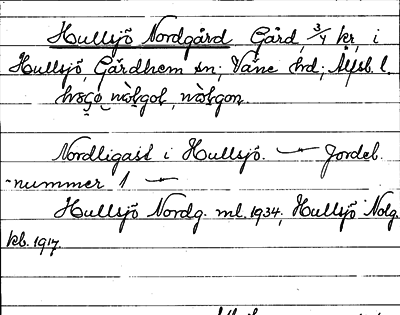 Hullsjö Nordgård Gård, 3/4 kr, i
Hullsjö, Gärdhem sn; Väne hd; Älfsb. l.
Nordligast i Hullsjö. — Jordeb.
nummer 1 —
Hullsjö Nordg. ml. 1934, Hullsjö Nolg.
kb. 1917.